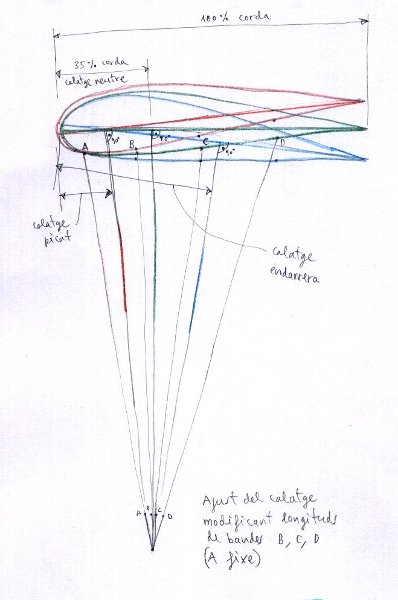 100% corda
35% corda
calatge neutre
A
B
C
D
calatge
picat
calatge
endarrera
A
B
C
D
Ajust del calatge
modificant longituds
de bandes B, C, D
(A fixe)